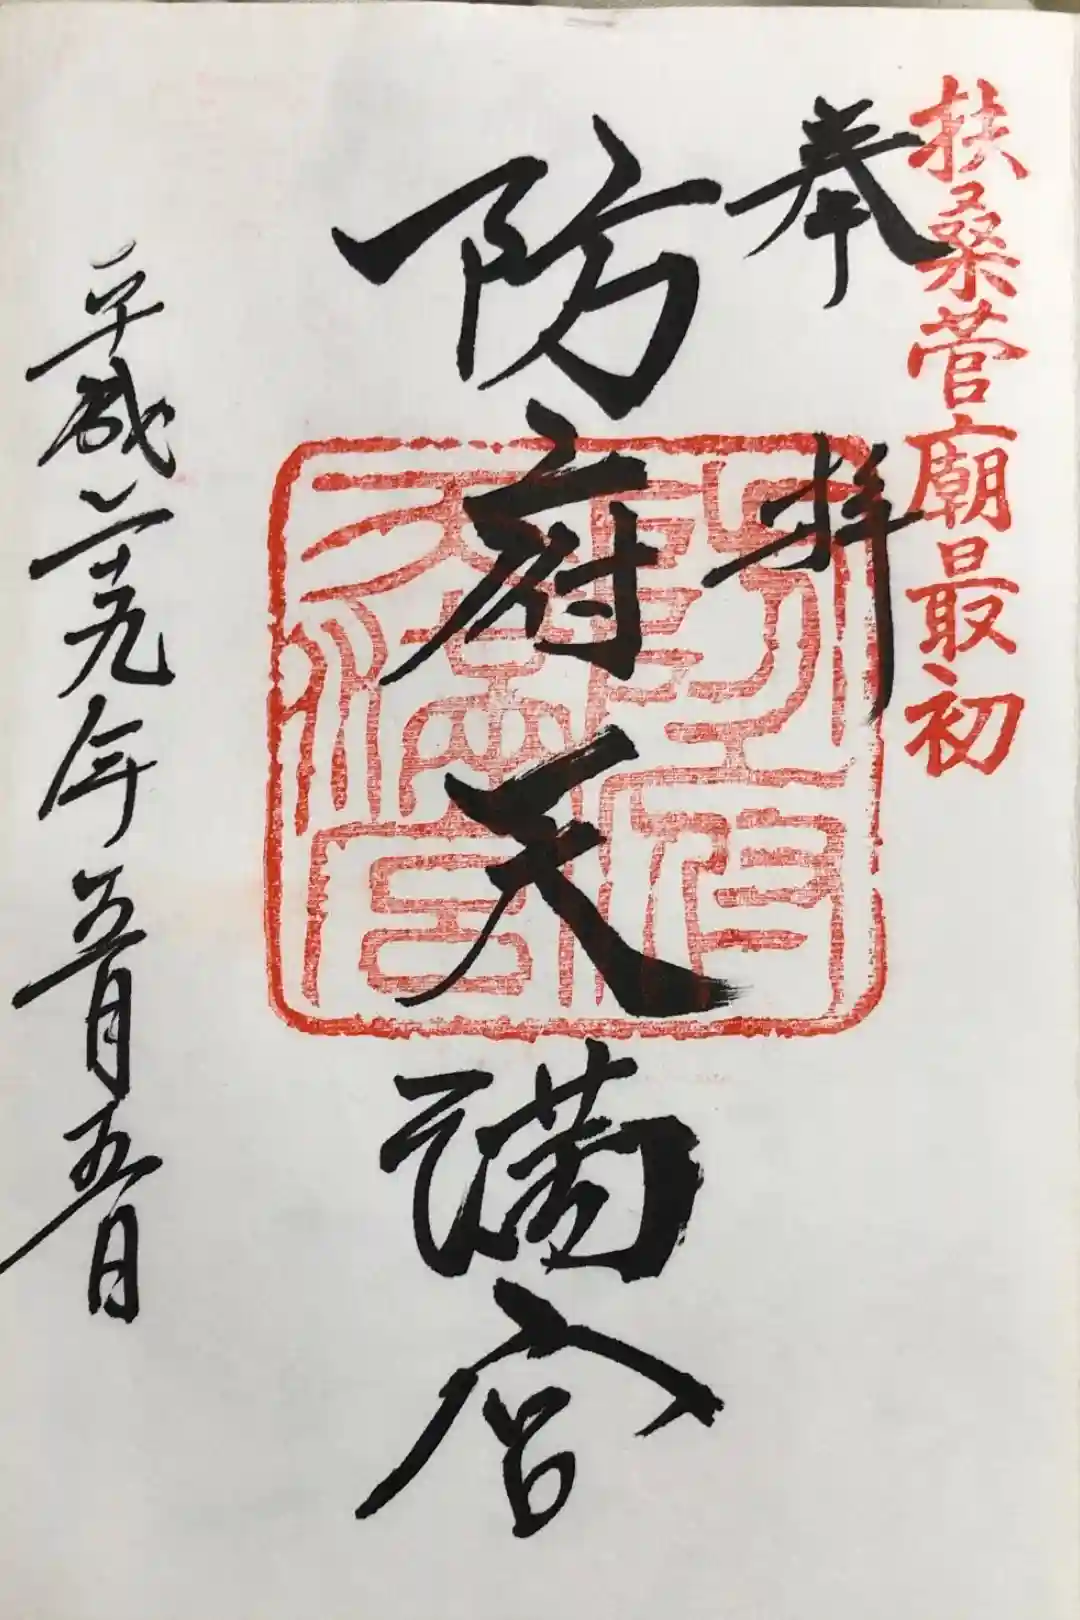 扶桑菅廟最初
奉拝
防府天満宮
防府天満宮
平成二十九年五月五日